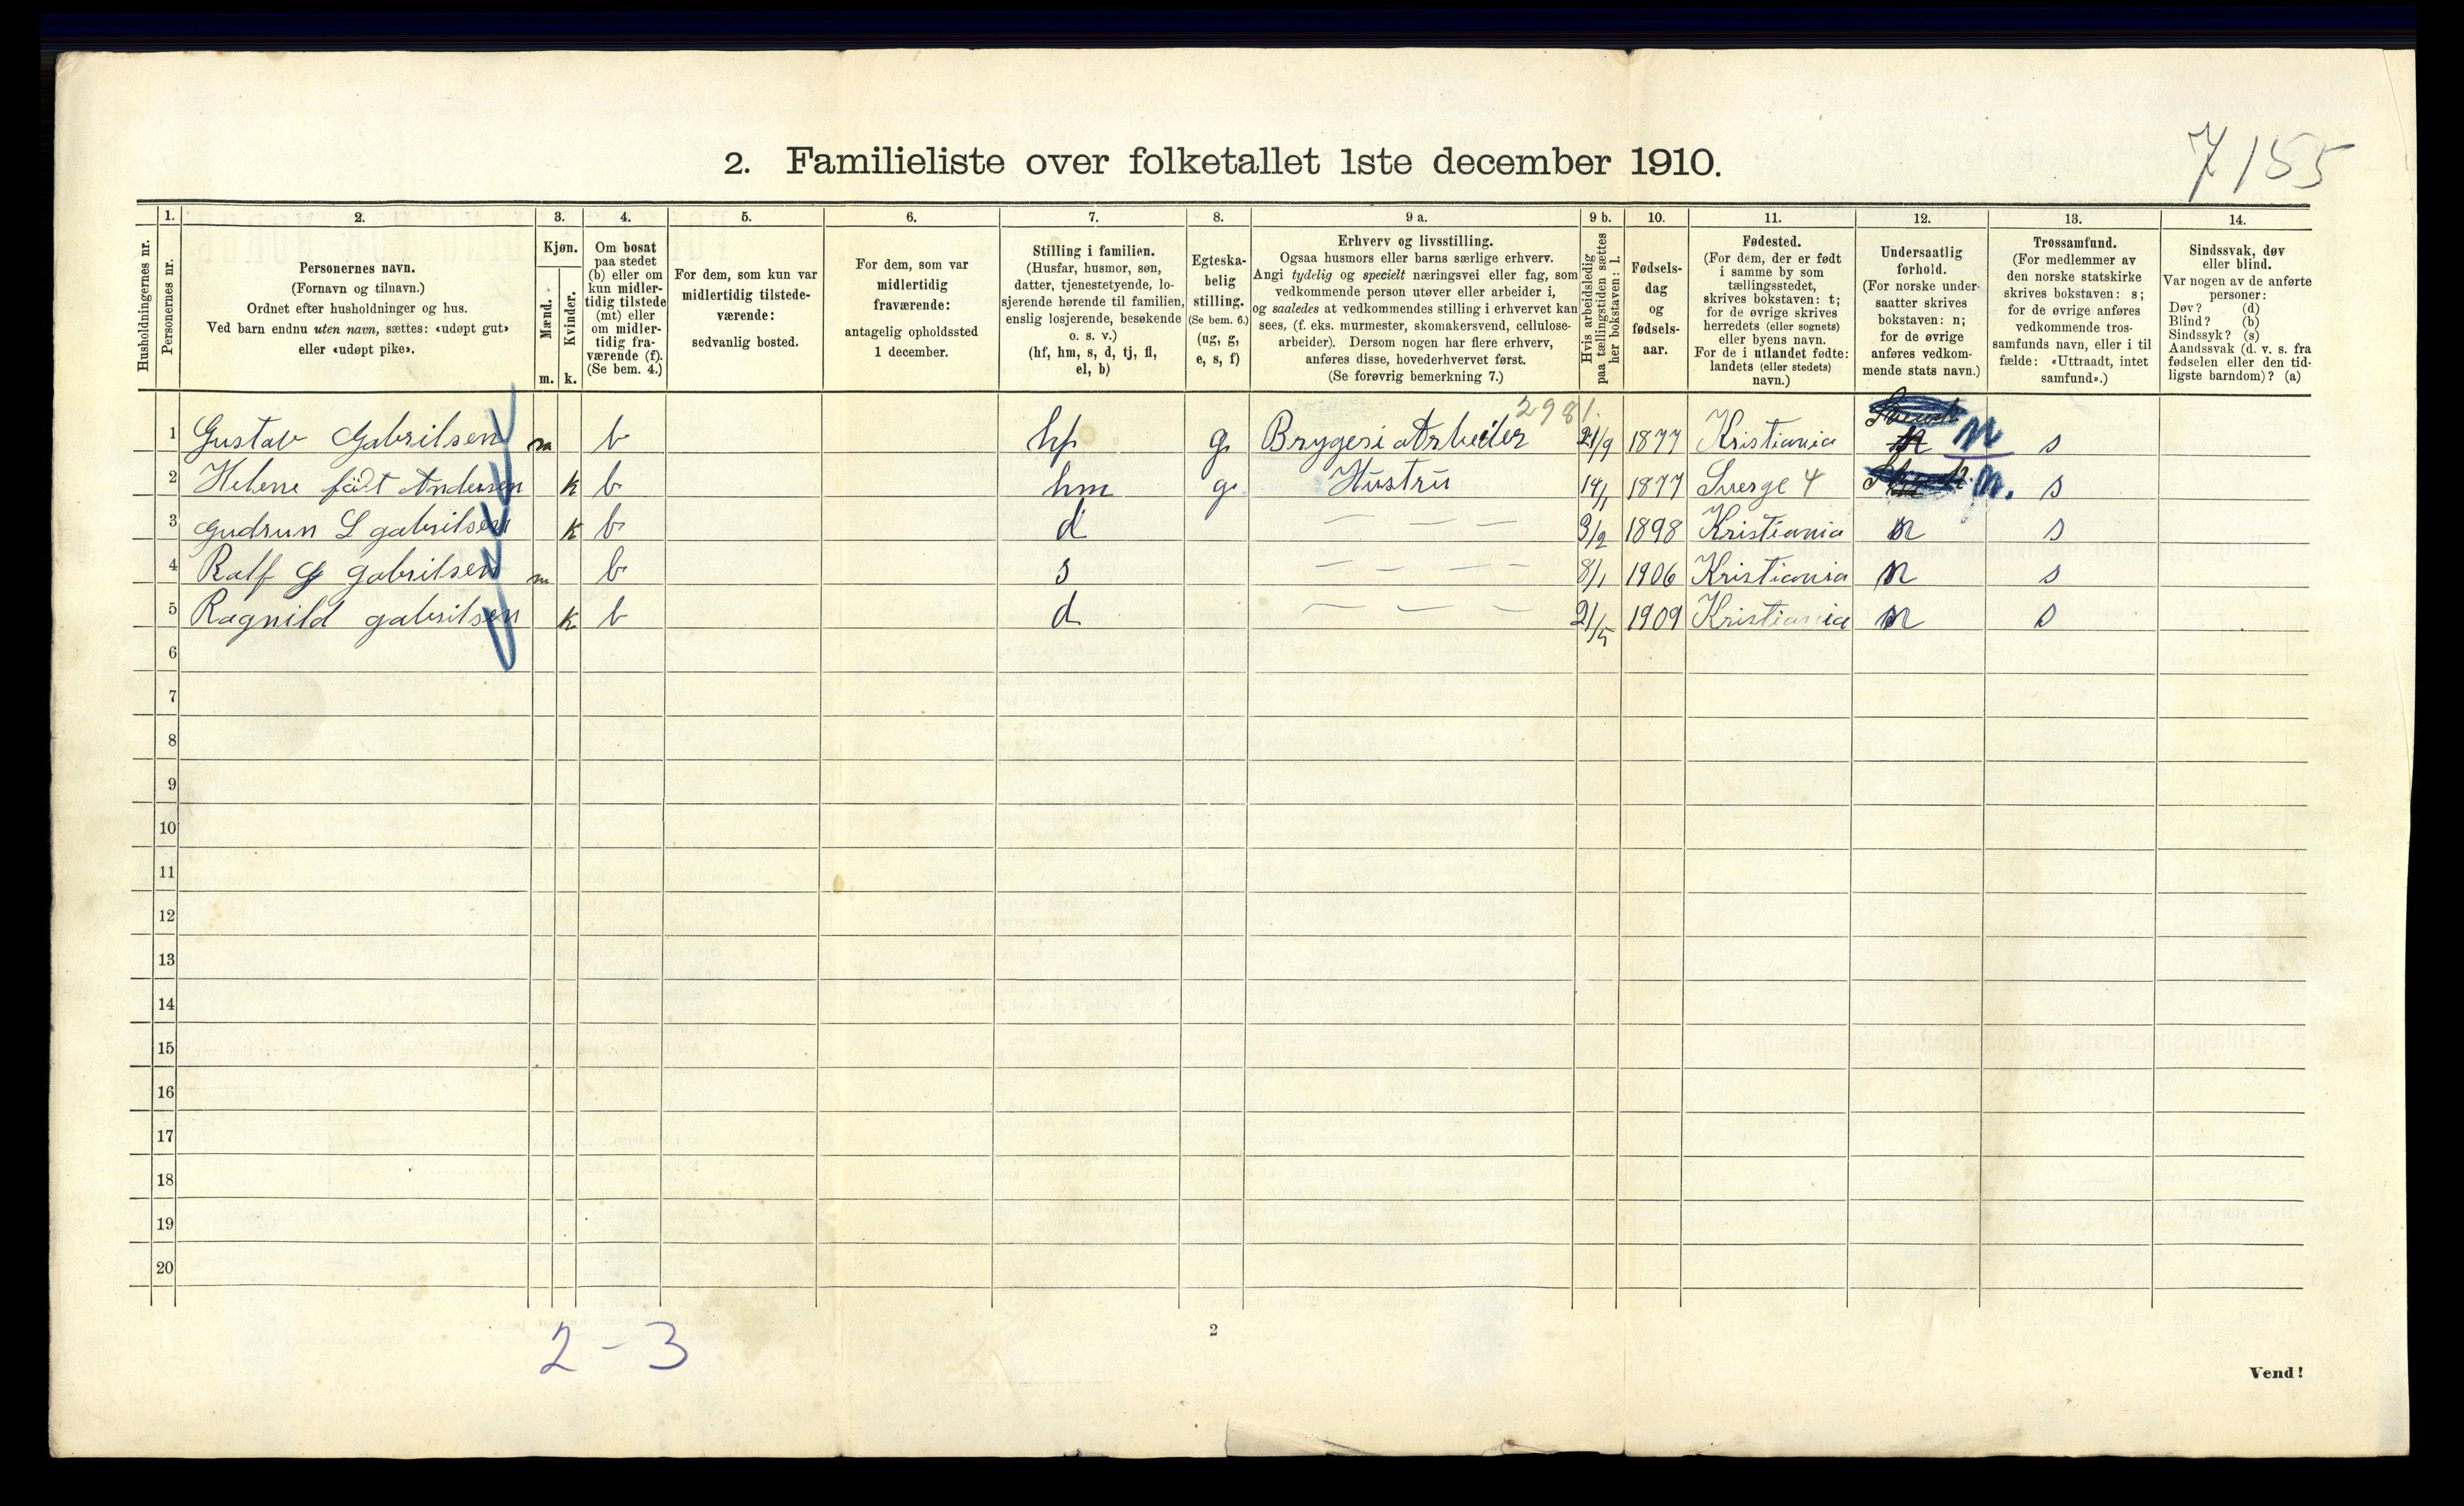 7155
2. Familieliste over folketallet 1ste december 1910.
Husholdningernes nr.
1. Personernes nr.
2. Personernes navn.
(Fornavn og tilnavn.)
Ordnet efter husholdninger og hus.
Ved barn endnu uten navn, sættes: «udøpt gut»
eller «udøpt pike».
3. Kjøn.
Mænd. m.
Kvinder. k.
4. Om bosat
paa stedet
(b) eller om
kun midler-
tidig tilstede
(mt) eller
om midler-
tidig fra-
værende (f).
(Se bem. 4.)
5. For dem, som kun var
midlertidig tilstede-
værende:
sedvanlig bosted.
6. For dem, som var
midlertidig
fraværende:
antagelig opholdssted
1 december.
7. Stilling i familien.
(Husfar, husmor, søn,
datter, tjenestetyende, lo-
sjerende hørende til familien,
enslig losjerende, besøkende
o. s. v.)
(hf, hm, s, d, tj, fl,
el, b)
8. Egteska-
belig
stilling.
(Se bem. 6.)
(ug, g,
e, s, f)
9 a. Erhverv og livsstilling.
Ogsaa husmors eller barns særlige erhverv.
Angi tydelig og specielt næringsvei eller fag, som
vedkommende person utøver eller arbeider i,
og saaledes at vedkommendes stilling i erhvervet kan
sees, (f. eks. murmester, skomakersvend, cellulose-
arbeider). Dersom nogen har flere erhverv,
anføres disse, hovederhvervet først.
(Se forøvrig bemerkning 7.)
9 b. Hvis arbeidsledig
paa tællingstiden sættes
her bokstaven: l.
10. Fødsels-
dag
og
fødsels-
aar.
11. Fødested.
(For dem, der er født
i samme by som
tællingsstedet,
skrives bokstaven: t;
for de øvrige skrives
herredets (eller sognets)
eller byens navn.
For de i utlandet fødte:
landets (eller stedets)
navn.)
12. Undersaatlig
forhold.
(For norske under-
saatter skrives
bokstaven: n;
for de øvrige
anføres vedkom-
mende stats navn.)
13. Trossamfund.
(For medlemmer av
den norske statskirke
skrives bokstaven: s;
for de øvrige anføres
vedkommende tros-
samfunds navn, eller i til
fælde: «Uttraadt, intet
samfund».)
14. Sindssvak, døv
eller blind.
Var nogen av de anførte
personer:
Døv? (d)
Blind? (b)
Sindssyk? (s)
Aandssvak (d. v. s. fra
fødselen eller den tid-
ligste barndom)? (a)
2981.
1 Gustav Gabrilsen m b hf g. Brygeri Arbeider 21/9 1877 Kristiania n s
2 Helene født Andersen k b hm g. Hustru 14/1 1877 Sverge 4 n. s
3 Gudrun L gabrilsen k b d — — — 3/2 1898 Kristiania n s
4 Ralf G gabrilsen m b s — — — — 8/1 1906 Kristiania n s
5 Ragnild gabrilsen k b d — — — 21/5 1909 Kristiania n s
6
7
8
9
10
11
12
13
14
15
16
17
18
19
20
2 - 3
2
Vend!